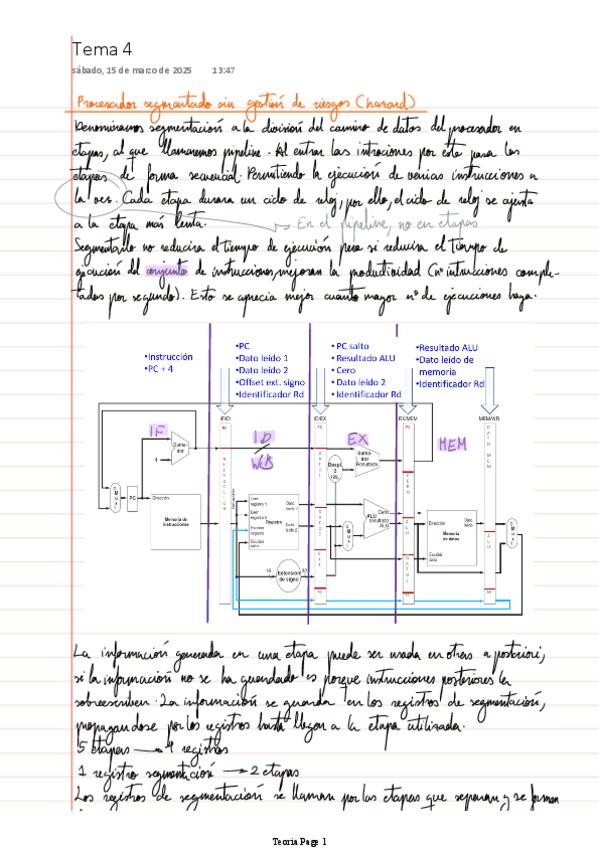 Tema 4
sábado, 15 de marzo de 2025 13:47
Procesador segmentado sin gestión de riesgos (hazard)
Denominamos segmentación a la división del camino de datos del procesador en
etapas, al que llamaremos pipeline. Al entrar las intrucciones por éste pasa las
etapas de forma secuencial. Permitiendo la ejecución de varias instrucciones a
la vez. Cada etapa durara un ciclo de reloj, por ello, el ciclo de reloj se ajusta
a la etapa más lenta.
En el pipeline, no en etapas
Segmentado no reducira el tiempo de ejecución pero si reducira el tiempo de
ejecución del conjunto de instrucciones, mejoran la productividad (nº intrucciones comple-
tadas por segundo). Esto se aprecia mejor cuanto mayor nº de ejecuciones haya.
•Instrucción
•PC + 4
•PC
•Dato leído 1
•Dato leído 2
•Offset ext. signo
•Identificador Rd
• PC salto
• Resultado ALU
• Cero
• Dato leído 2
• Identificador Rd
•Resultado ALU
•Dato leído de
memoria
•Identificador Rd
IF/ID
ID/EX
EX/MEM
MEM/WB
IF
ID
WB
EX
MEM
Suma-
dor
4
PC
Dirección
Memoria de
instrucciones
Leer
registro 1
Leer
registro 2
Escribir
registro
Escribir
dato
Registros
Dato
leído 1
Dato
leído 2
16
32
Extensión
de signo
Suma-
dor
Resultado
Cero
ALU
Resultado
ALU
Dirección
Dato
leído
Memoria
de datos
Escribir
dato
La información generada en una etapa puede ser usada en otras a posteriori,
si la información no se ha guardado es porque instrucciones posteriores la
sobreescriben. La información se guarda en los registros de segmentación,
propagandose por los registros hasta llegar a la etapa utilizada.
5 etapas → 4 registros
1 registro segmentación → 2 etapas
Los registros de segmentación se llaman por las etapas que separan y se forman
Teoría Page 1